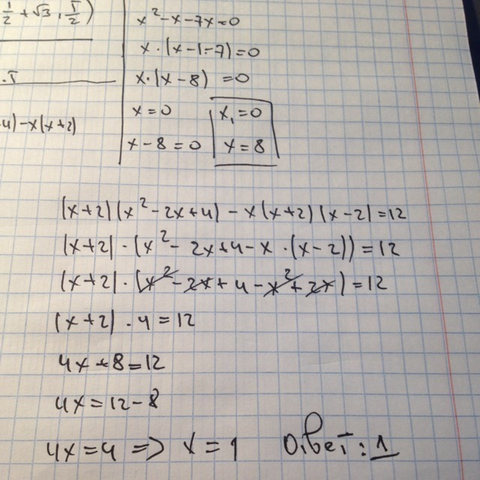 1/2 + √3 ; 5/2)
. 5
4)-x(x+2)
x²-x-7x=0
x·(x-1-7)=0
x·(x-8) =0
x=0 x₁=0
x-8=0 x=8
(x+2)(x²-2x+4)-x(x+2)(x-2)=12
(x+2)·(x²-2x+4-x·(x-2))=12
(x+2)·(x²-2x+4-x²+2x)=12
(x+2)·4=12
4x+8=12
4x=12-8
4x=4 => x=1 Ответ: 1